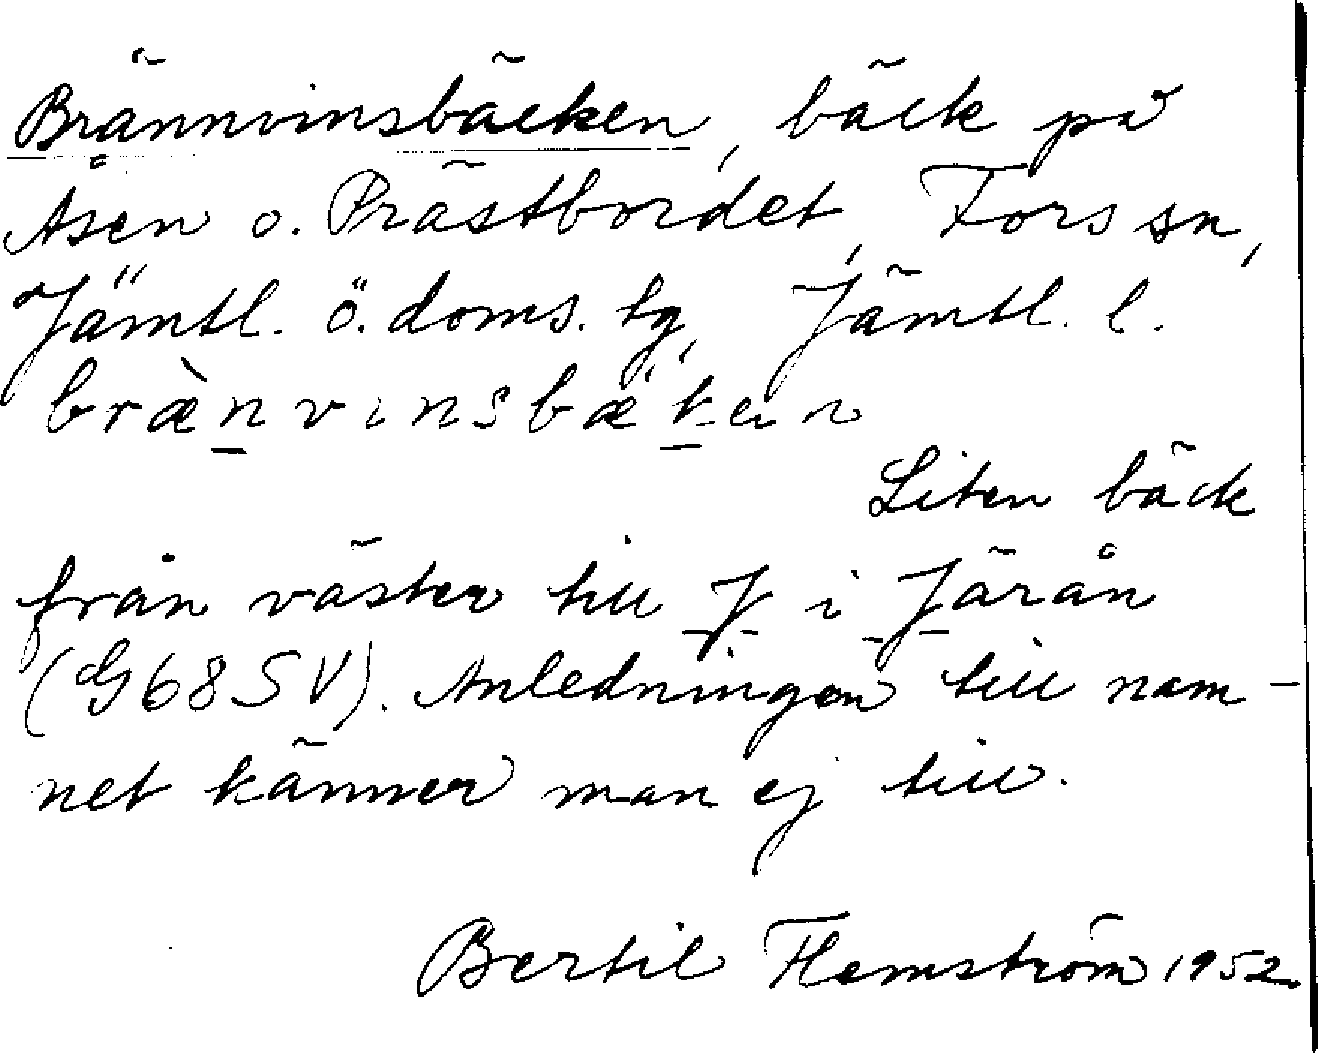 Brännvinsbäcken, bäck på
Åsen o. Prästbordet, Fors sn,
Jämtl. ö. doms. tg, Jämtl. l.
brænvinsbækn
Liten bäck
från väster till J i Järån
(G68SV). Anledningen till nam-
net känner man ej till.
Bertil Flemström 1952.